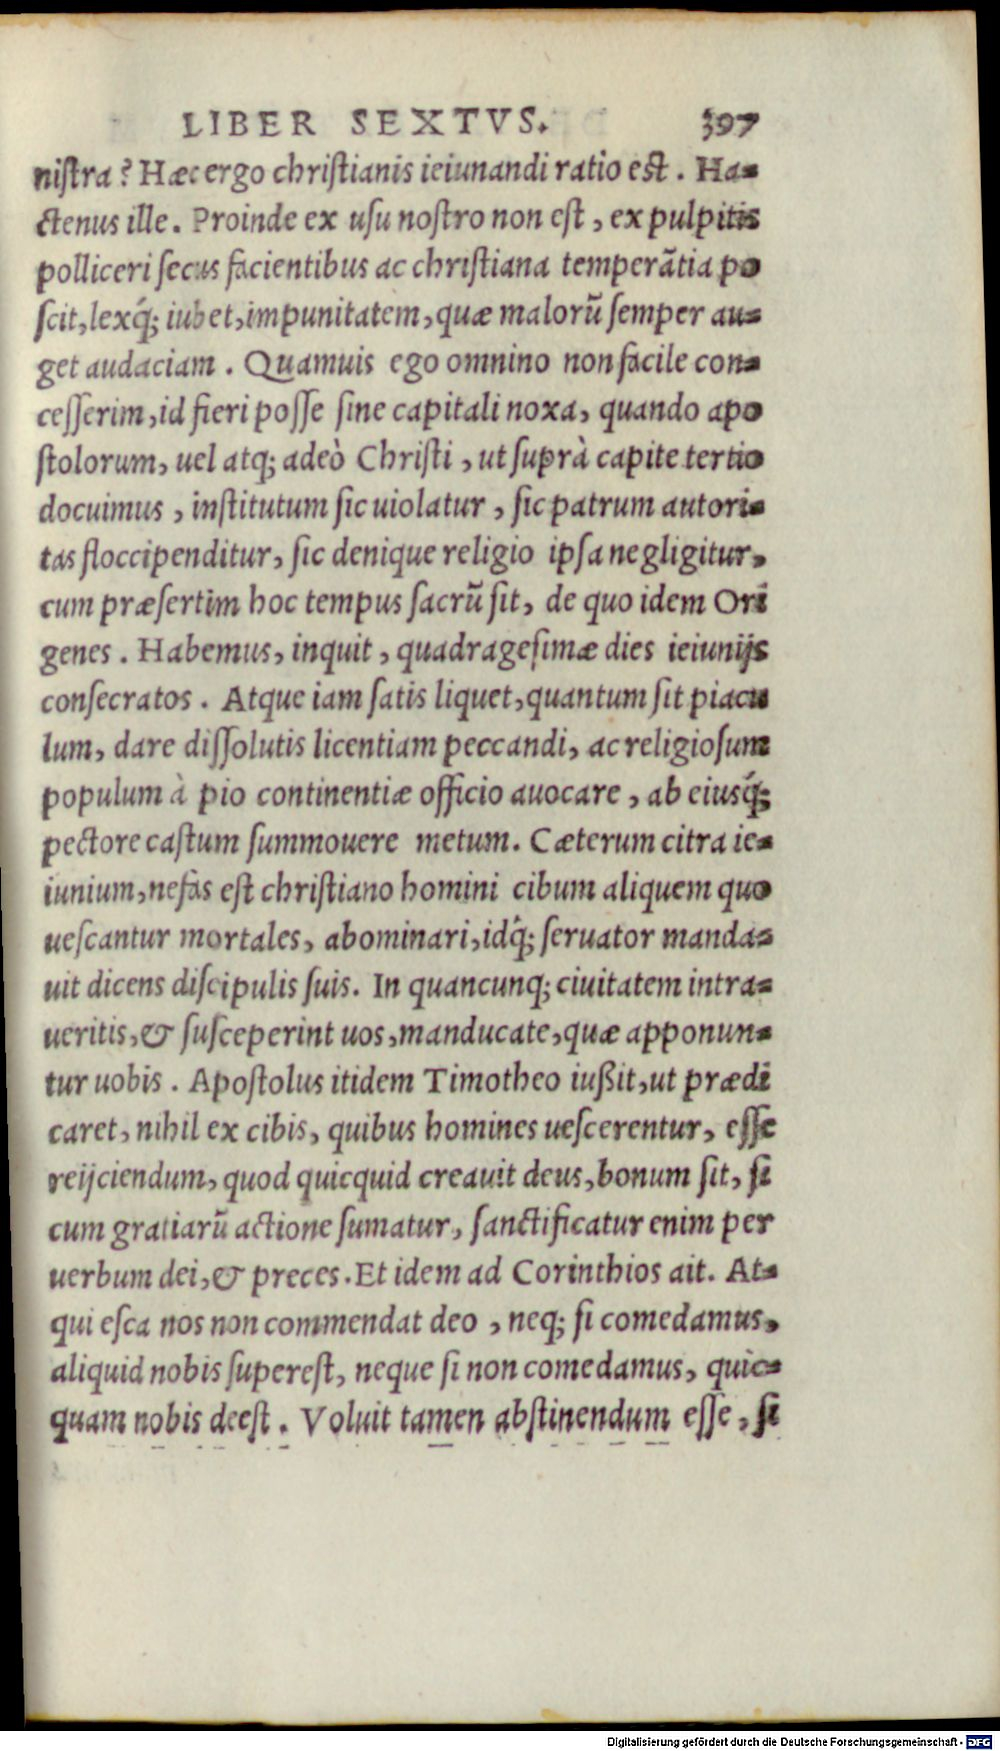 LIBER SEXTVS. 397
niſtra? Hæc ergo chriſtianis ieiunandi ratio eſt. Ha-
ctenus ille. Proinde ex uſu noſtro non eſt, ex pulpitis
polliceri ſecus facientibus ac chriſtiana temperãtia po
ſcit, lexq́; iubet, impunitatem, quæ malorũ ſemper au-
get audaciam. Quamuis ego omnino non facile con-
ceſſerim, id fieri poſſe ſine capitali noxa, quando apo
ſtolorum, uel atq; adeò Chriſti, ut ſuprà capite tertio
docuimus, inſtitutum ſic uiolatur, ſic patrum autori-
tas floccipenditur, ſic denique religio ipſa negligitur,
cum præſertim hoc tempus ſacrũ ſit, de quo idem Ori
genes. Habemus, inquit, quadrageſimæ dies ieiunijs
conſecratos. Atque iam ſatis liquet, quantum ſit piacu
lum, dare diſſolutis licentiam peccandi, ac religioſum
populum à pio continentiæ officio auocare, ab eiusq́;
pectore caſtum ſummouere metum. Cæterum citra ie-
iunium, nefas eſt chriſtiano homini cibum aliquem quo
ueſcantur mortales, abominari, idq́; ſeruator manda-
uit dicens diſcipulis ſuis. In quancunq; ciuitatem intra-
ueritis, & ſuſceperint uos, manducate, quæ apponun-
tur uobis. Apoſtolus itidem Timotheo iußit, ut prædi
caret, nihil ex cibis, quibus homines ueſcerentur, eſſe
reijciendum, quod quicquid creauit deus, bonum ſit, ſi
cum gratiarũ actione ſumatur, ſanctificatur enim per
uerbum dei, & preces. Et idem ad Corinthios ait. At-
qui eſca nos non commendat deo, neq; ſi comedamus,
aliquid nobis ſupereſt, neque ſi non comedamus, quic-
quam nobis deeſt. Voluit tamen abſtinendum eſſe, ſi
Digitalisierung gefördert durch die Deutsche Forschungsgemeinschaft - DFG